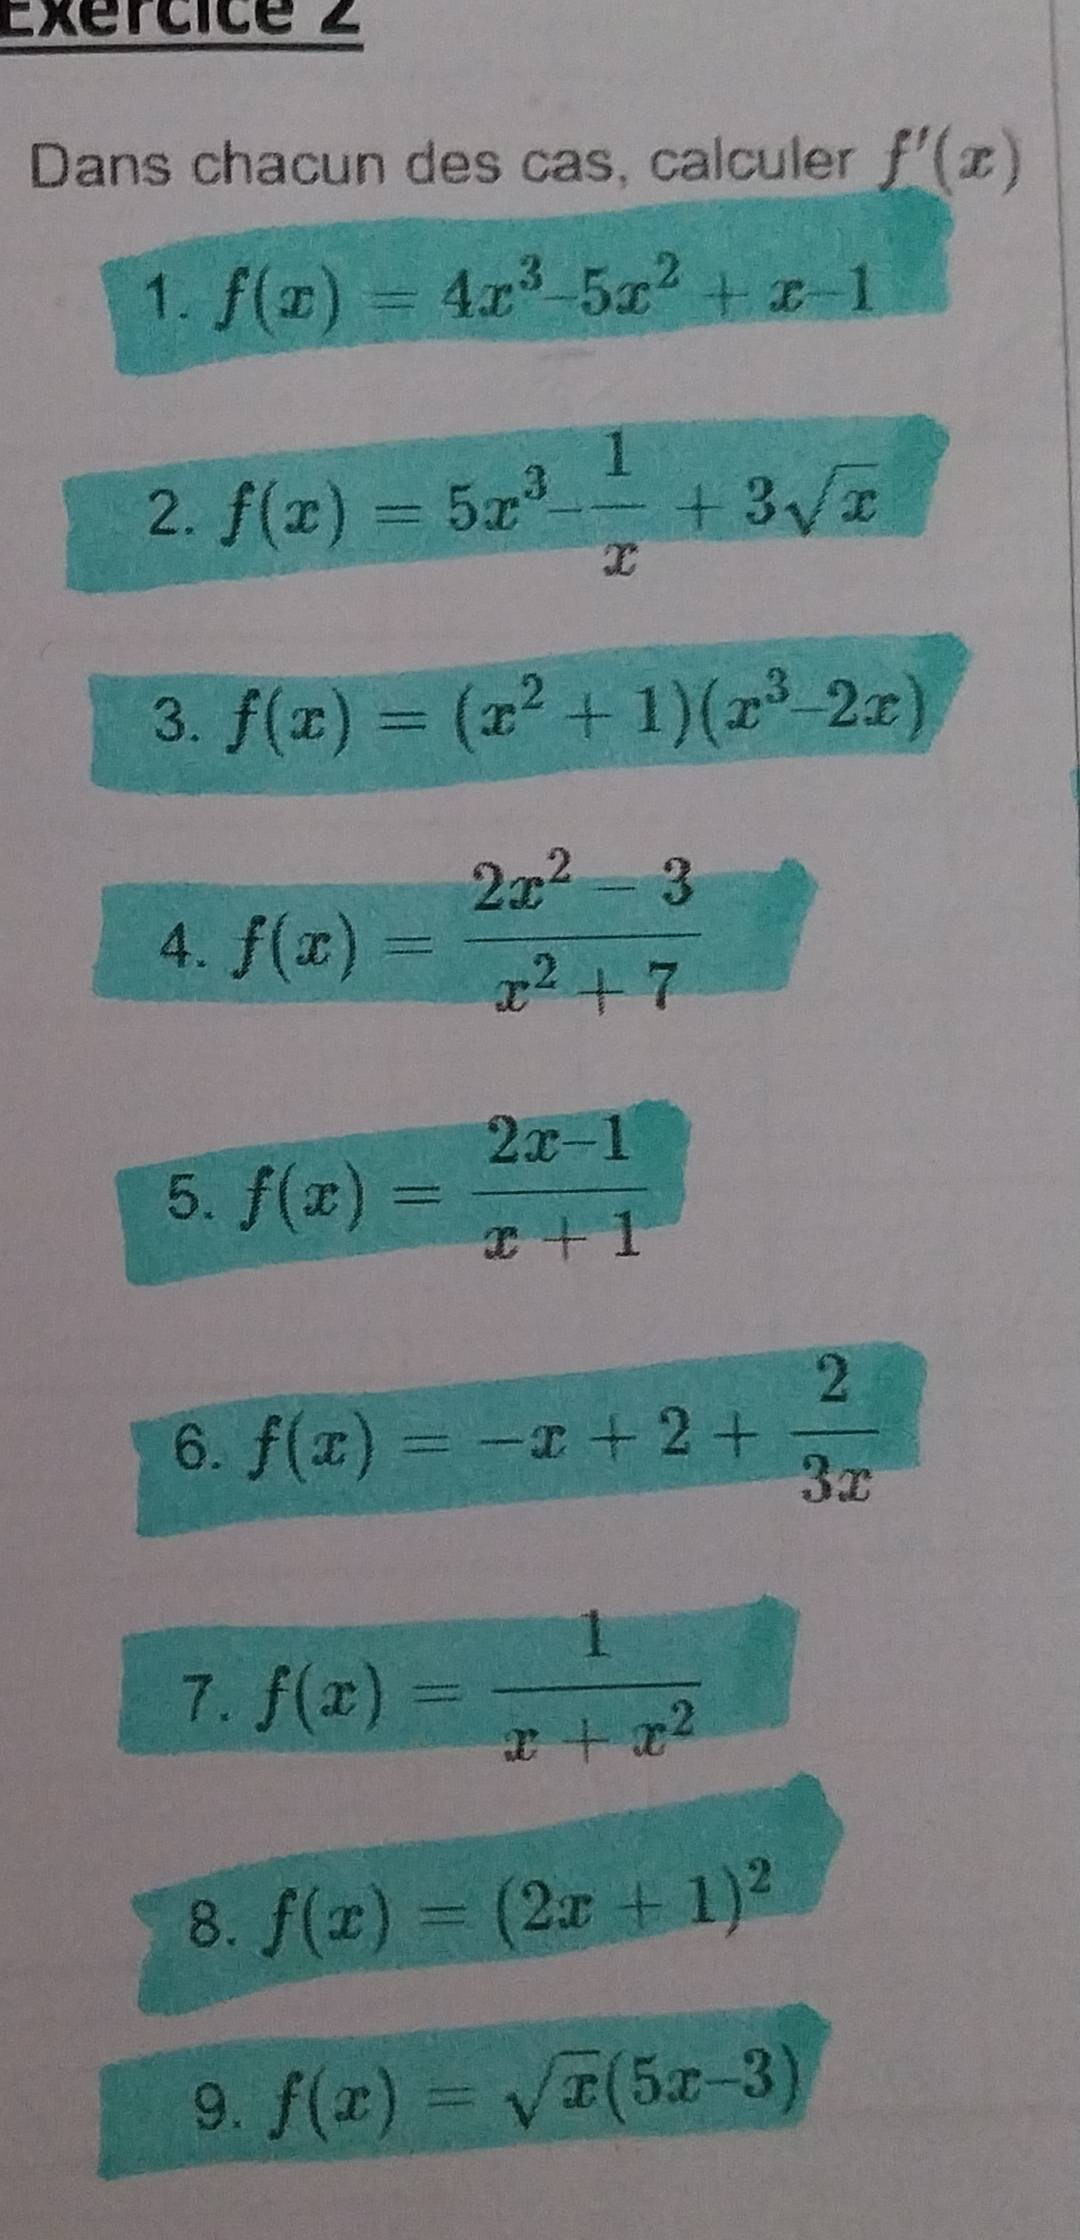 Exercice 2
Dans chacun des cas, calculer f'(x)
1. f(x) = 4x³–5x² + x–1
2. f(x) = 5x³–\frac{1}{x} + 3√x
3. f(x) = (x² + 1)(x³–2x)
4. f(x) = \frac{2x² − 3}{x² + 7}
5. f(x) = \frac{2x–1}{x + 1}
6. f(x) = −x + 2 + \frac{2}{3x}
7. f(x) = \frac{1}{x + x²}
8. f(x) = (2x + 1)²
9. f(x) = √x(5x–3)